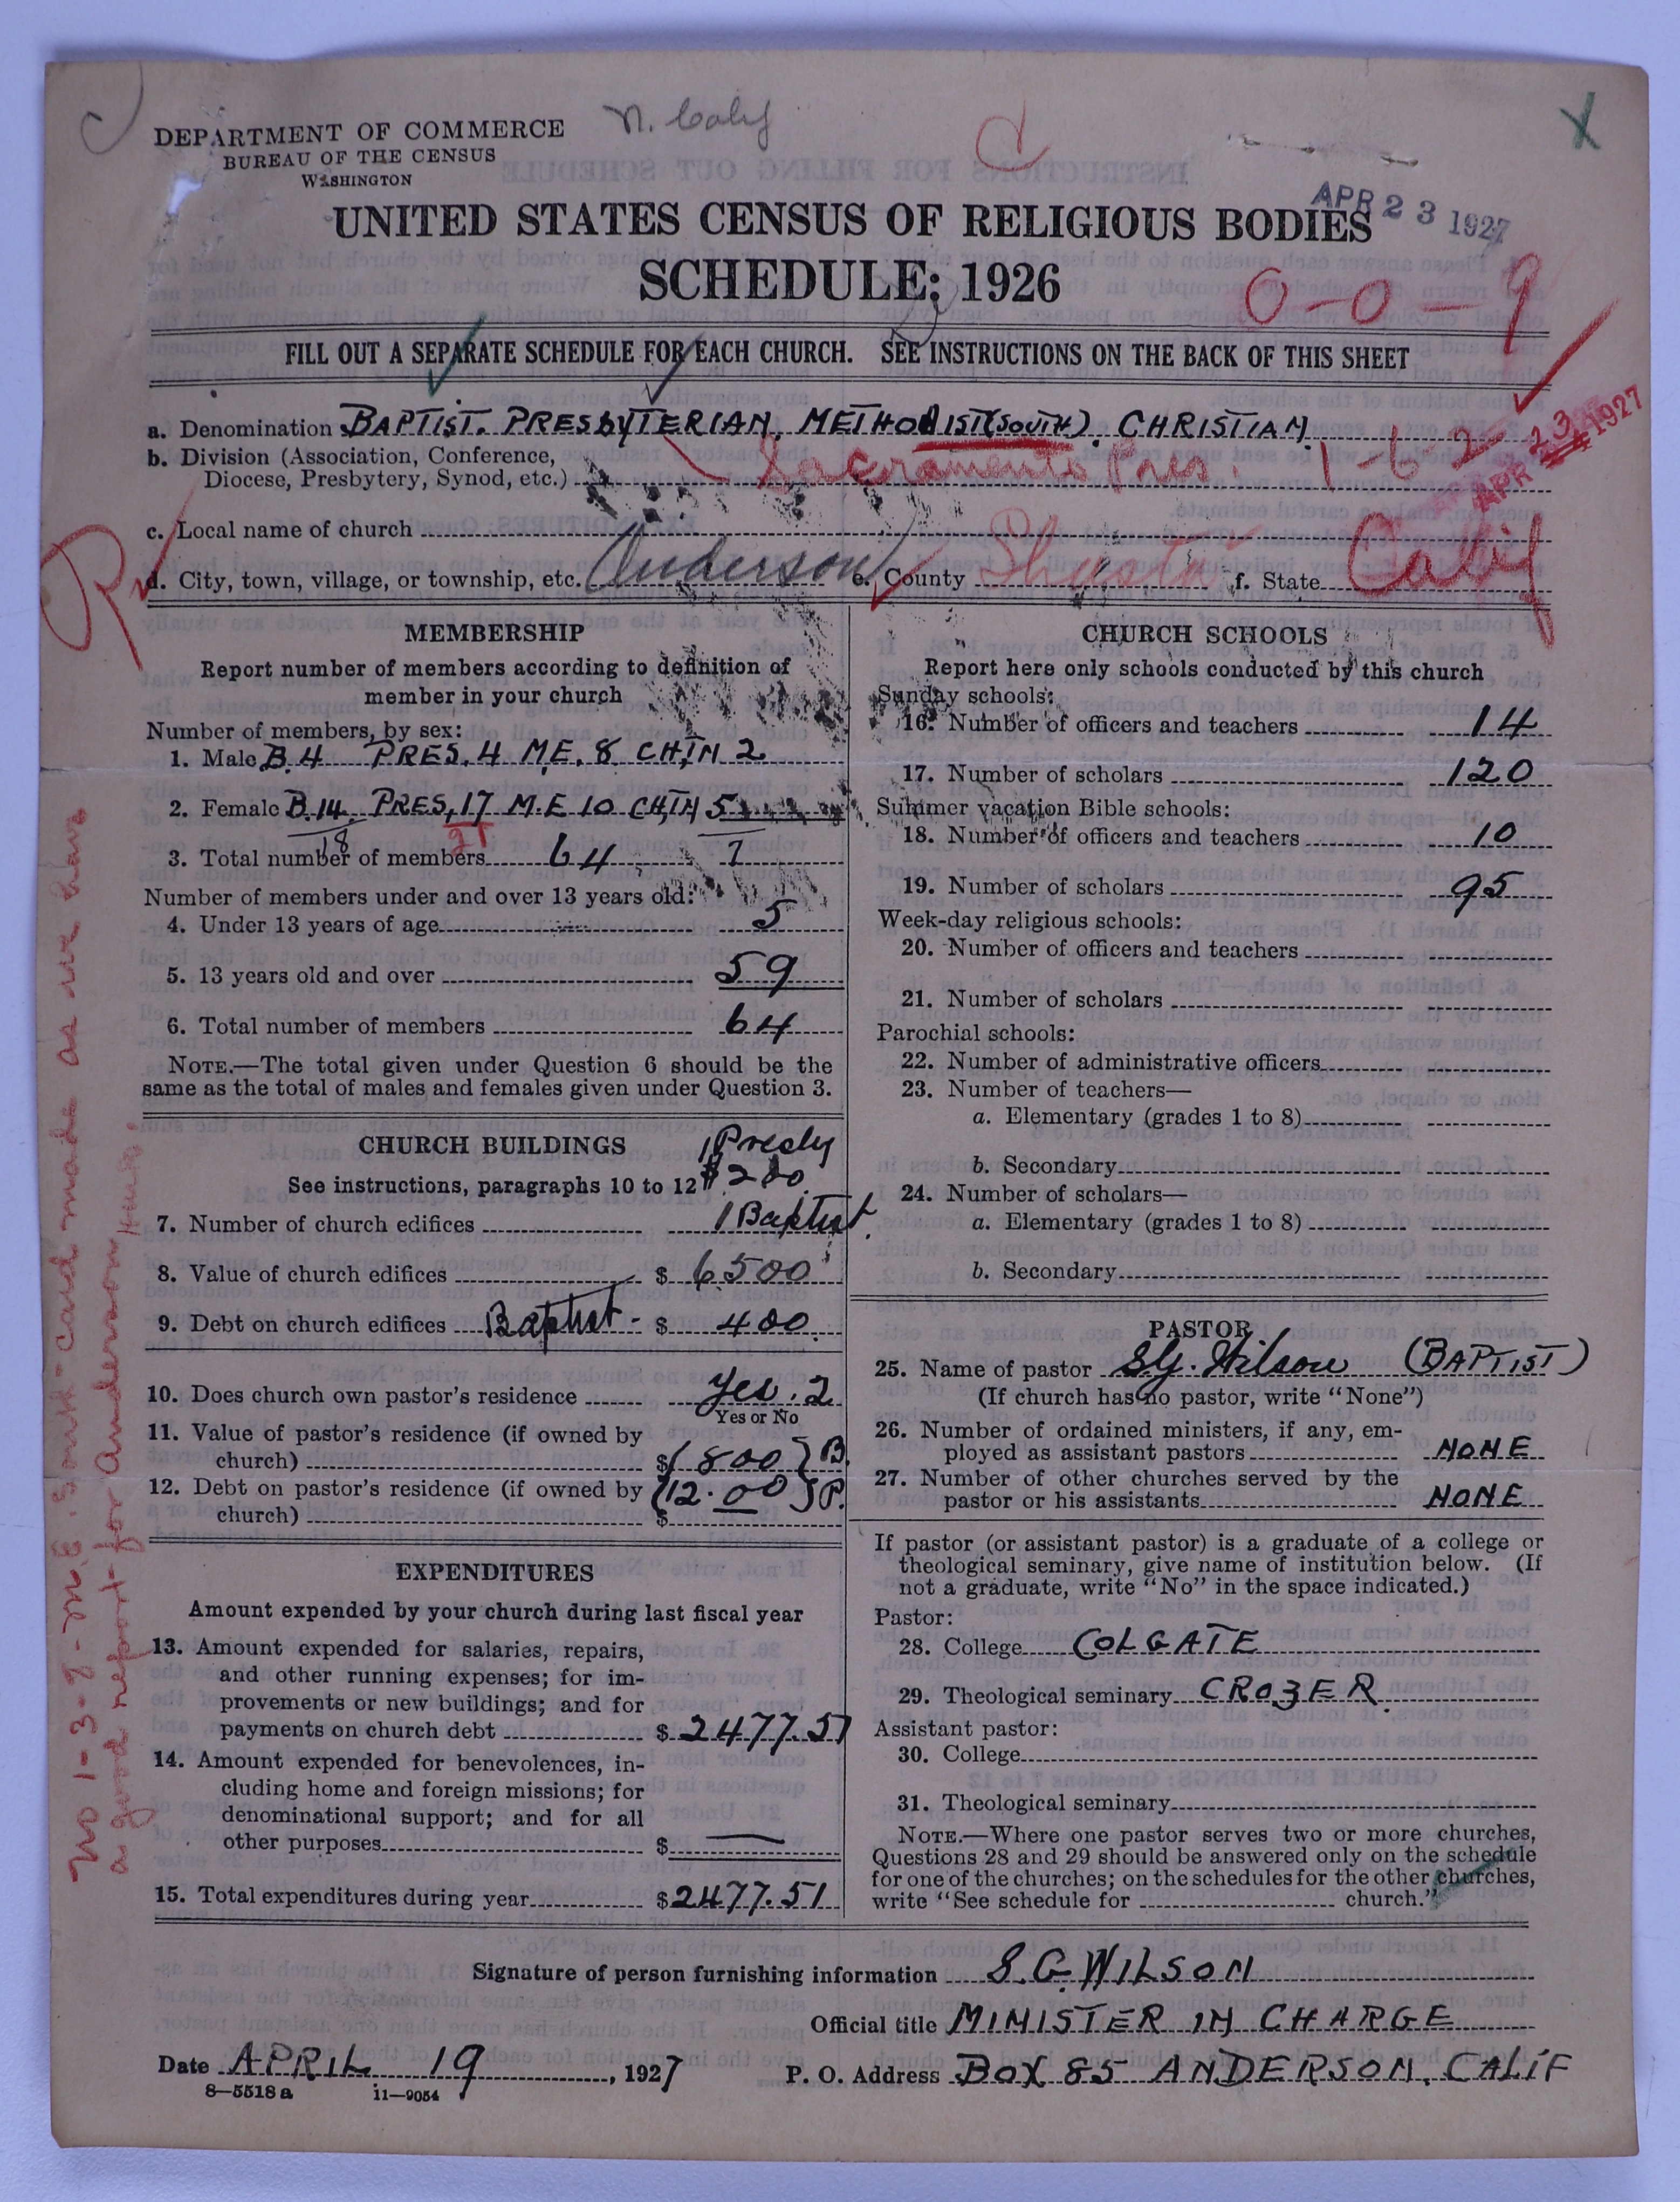 DEPARTMENT OF COMMERCE
BUREAU OF THE CENSUS
WASHINGTON
N. Calif
APR 23 1927
UNITED STATES CENSUS OF RELIGIOUS BODIES
SCHEDULE: 1926
0-0-9
FILL OUT A SEPARATE SCHEDULE FOR EACH CHURCH. SEE INSTRUCTIONS ON THE BACK OF THIS SHEET
a. Denomination BAPTIST. PRESBYTERIAN. METHODIST(SOUTH). CHRISTIAN
APR 23 1927
b. Division (Association, Conference,
Diocese, Presbytery, Synod, etc.) Sacramento Pres. 1-6-2
c. Local name of church
d. City, town, village, or township, etc. Anderson e. County Shasta f. State Calif
MEMBERSHIP
Report number of members according to definition of
member in your church
Number of members, by sex:
1. Male B. 4 PRES. 4 M.E. 8 CHTN 2
2. Female B. 14. PRES, 17 M.E 10 CHTN 5
18 21
3. Total number of members 64 7
Number of members under and over 13 years old:
4. Under 13 years of age 5
5. 13 years old and over 59
6. Total number of members 64
NOTE.—The total given under Question 6 should be the
same as the total of males and females given under Question 3.
CHURCH BUILDINGS 1 Presby
See instructions, paragraphs 10 to 12 $200
7. Number of church edifices 1 Baptist
8. Value of church edifices $ 6500
9. Debt on church edifices Baptist - $ 400
10. Does church own pastor's residence Yes. 2
Yes or No
11. Value of pastor's residence (if owned by
church) $ 1800 } B.
12. Debt on pastor's residence (if owned by (12.00 } P.
church) $
EXPENDITURES
Amount expended by your church during last fiscal year
13. Amount expended for salaries, repairs,
and other running expenses; for im-
provements or new buildings; and for
payments on church debt $ 2477.51
14. Amount expended for benevolences, in-
cluding home and foreign missions; for
denominational support; and for all
other purposes $ —
15. Total expenditures during year $ 2477.51
CHURCH SCHOOLS
Report here only schools conducted by this church
Sunday schools:
16. Number of officers and teachers 14
17. Number of scholars 120
Summer vacation Bible schools:
18. Number of officers and teachers 10
19. Number of scholars 95
Week-day religious schools:
20. Number of officers and teachers
21. Number of scholars
Parochial schools:
22. Number of administrative officers
23. Number of teachers—
a. Elementary (grades 1 to 8)
b. Secondary
24. Number of scholars—
a. Elementary (grades 1 to 8)
b. Secondary
PASTOR
25. Name of pastor S.G. Wilson (BAPTIST)
(If church has no pastor, write "None")
26. Number of ordained ministers, if any, em-
ployed as assistant pastors NONE
27. Number of other churches served by the
pastor or his assistants NONE
If pastor (or assistant pastor) is a graduate of a college or
theological seminary, give name of institution below. (If
not a graduate, write "No" in the space indicated.)
Pastor:
28. College COLGATE
29. Theological seminary CROZER.
Assistant pastor:
30. College
31. Theological seminary
NOTE.—Where one pastor serves two or more churches,
Questions 28 and 29 should be answered only on the schedule
for one of the churches; on the schedules for the other churches,
write "See schedule for church."
Signature of person furnishing information S. G. WILSON
Official title MINISTER IN CHARGE
Date APRIL 19, 1927 P. O. Address BOX 85 ANDERSON, CALIF
8—5518a 11—9054
No 1-3-8 - M.E. South - card made as we have
a good report for Anderson,